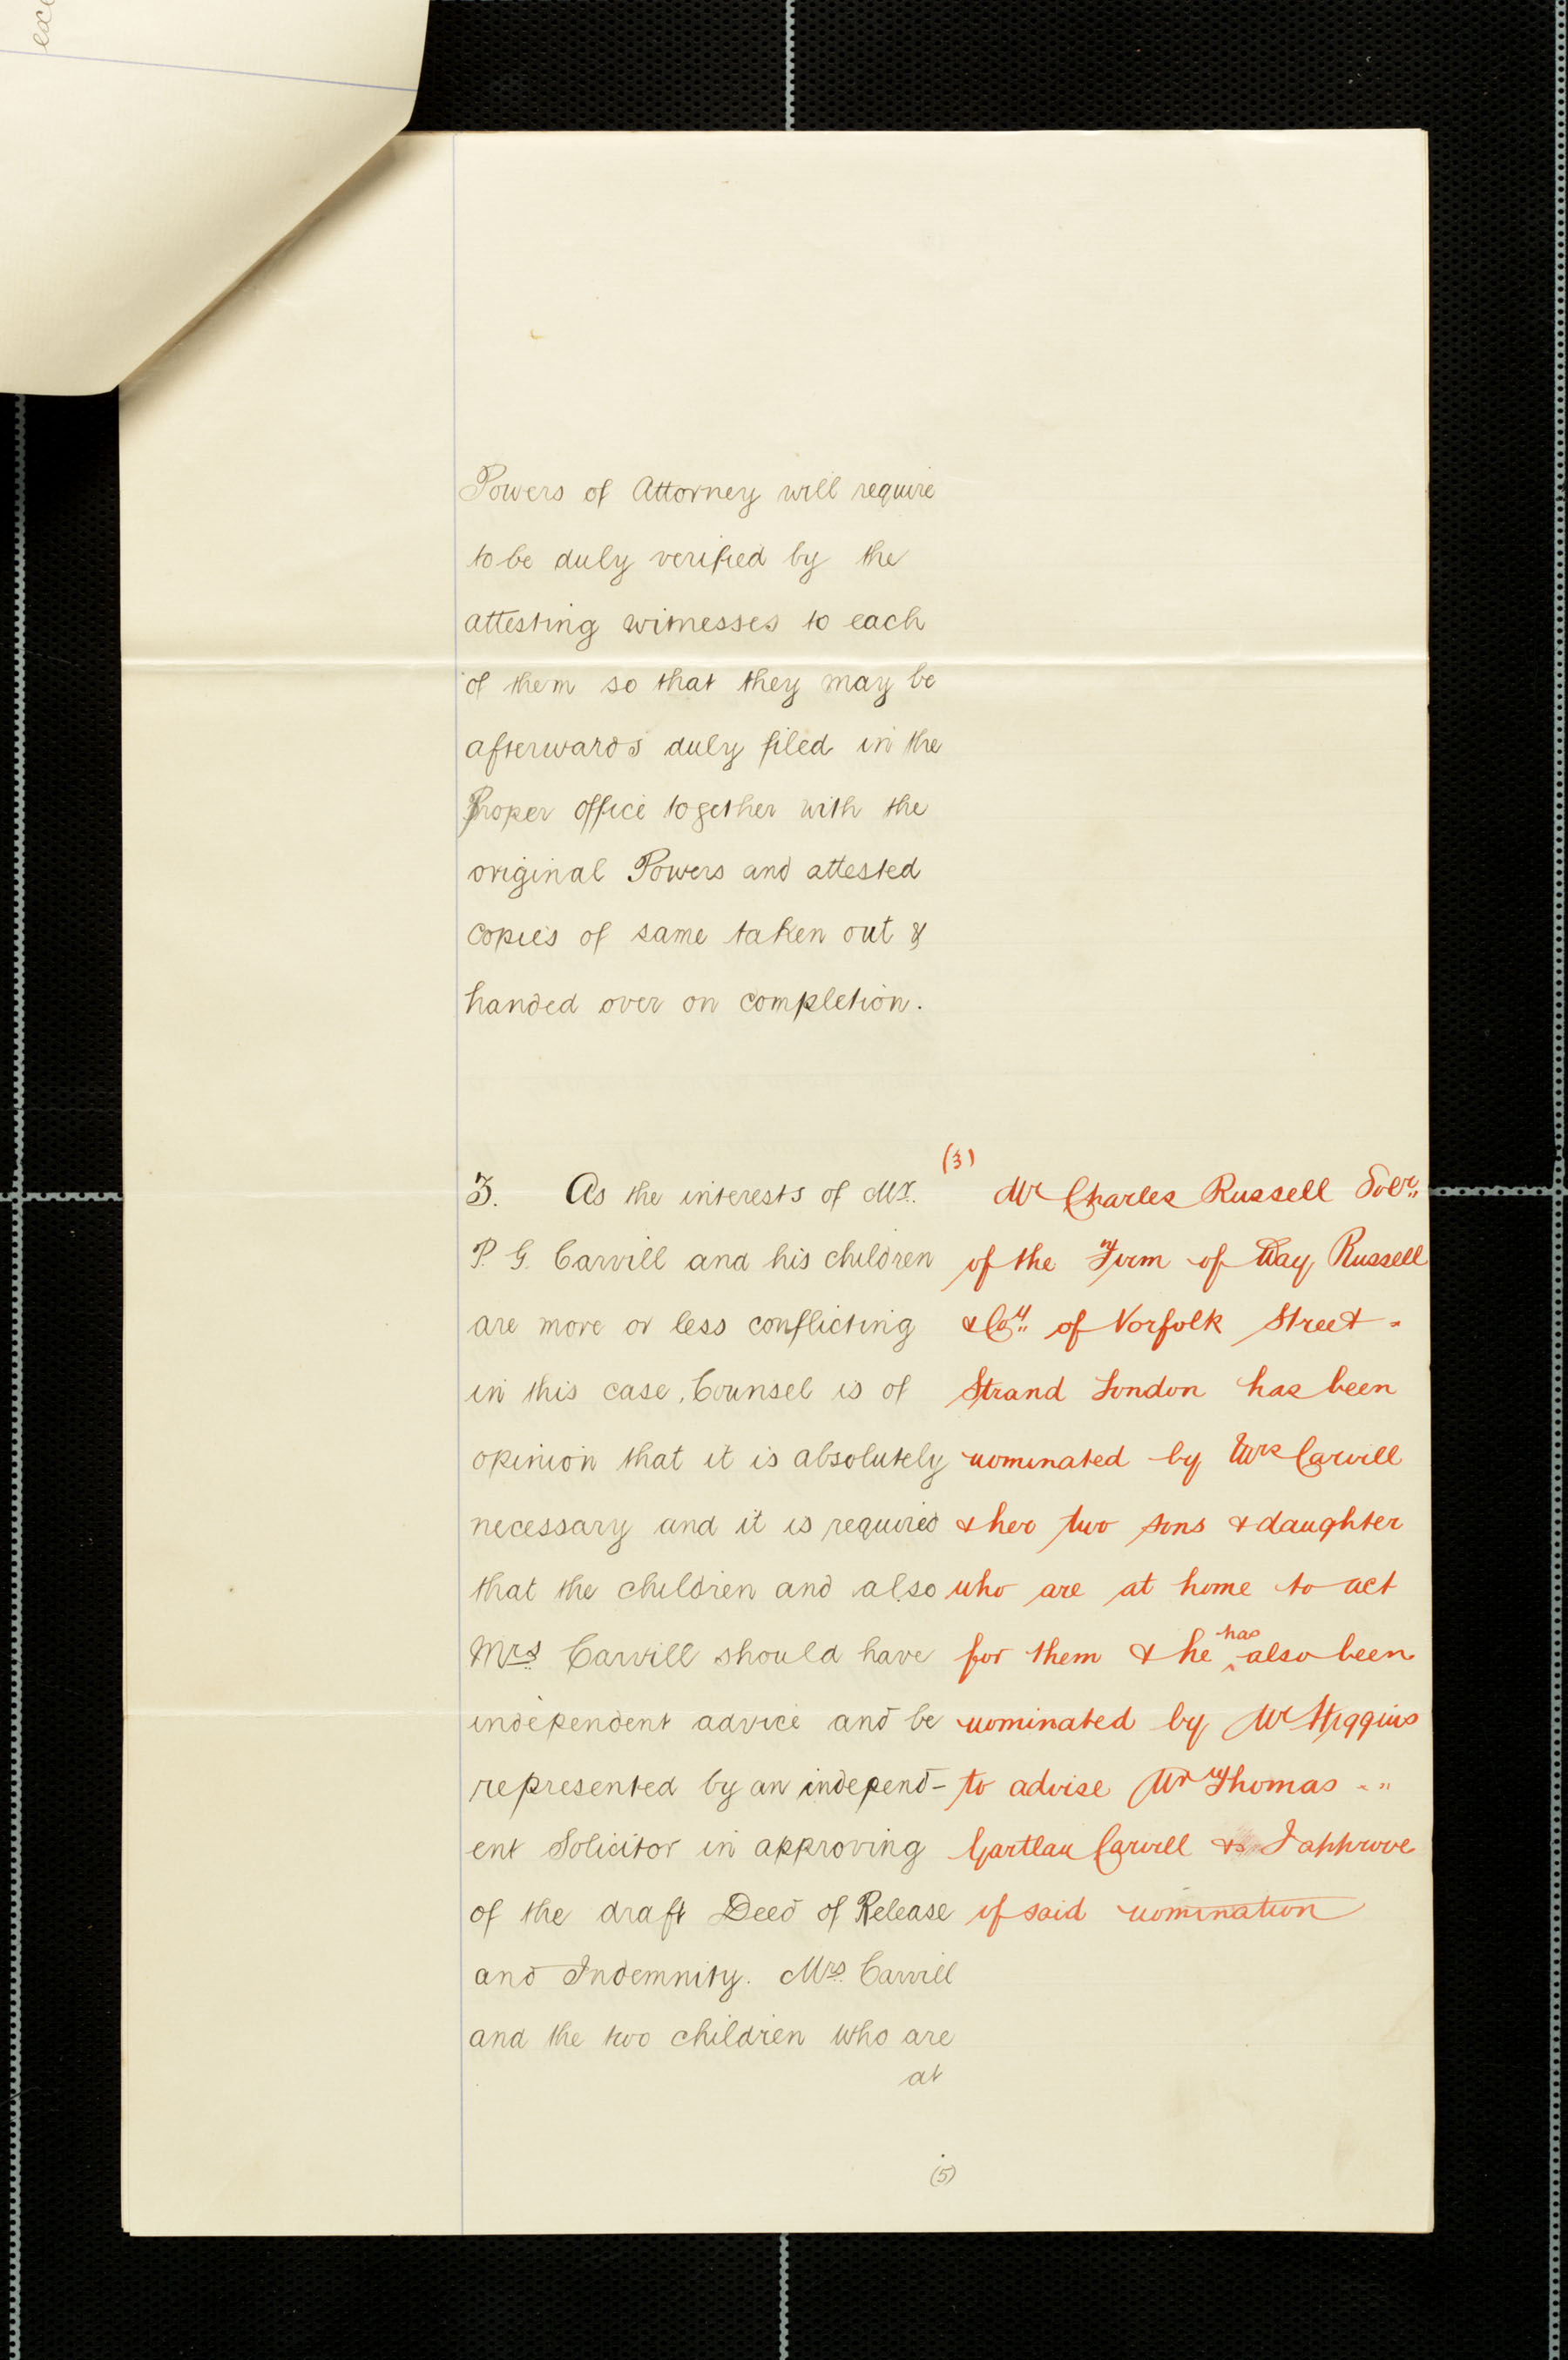 exc
Powers of Attorney will require
to be duly verified by the
attesting witnesses to each
of them so that they may be
afterwards duly filed in the
Proper office together with the
original Powers and attested
copies of same taken out &
handed over on completion.
3. As the interests of Mr.
P. G. Carvill and his children
are more or less conflicting
in this case, Counsel is of
opinion that it is absolutely
necessary and it is required
that the children and also
Mrs Carvill should have
independent advice and be
represented by an independ-
ent Solicitor in approving
of the draft Deed of Release
and Indemnity. Mrs. Carvill
and the two children who are
at
(3)
Mr Charles Russell Solr.
of the Firm of Day, Russell
& Coy of Norfolk Street -
Strand London has been
nominated by Mrs Carvill
& her two sons & daughter
who are at home to act
for them & he has also been
nominated by Mr Higgins
to advise Mr Thomas
Gartlan Carvill & I approve
of said nomination
(5)